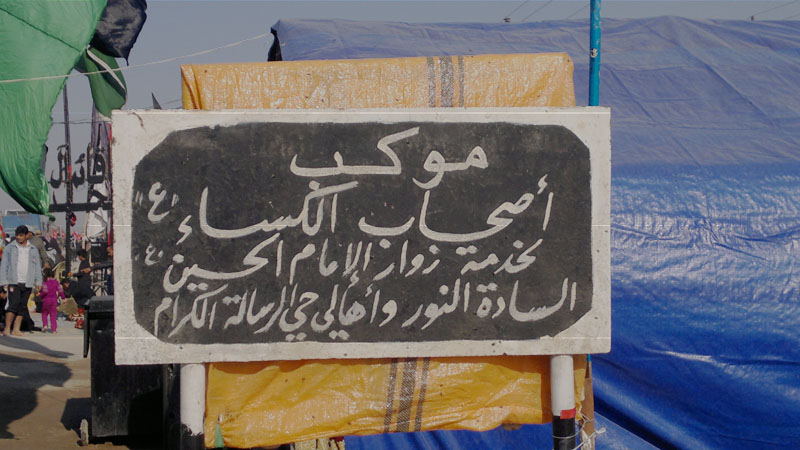 موكب
أصحاب الكساء "ع"
لخدمة زوار الإمام الحسين "ع"
السادة النور وأهالي حي الرسالة الكرام